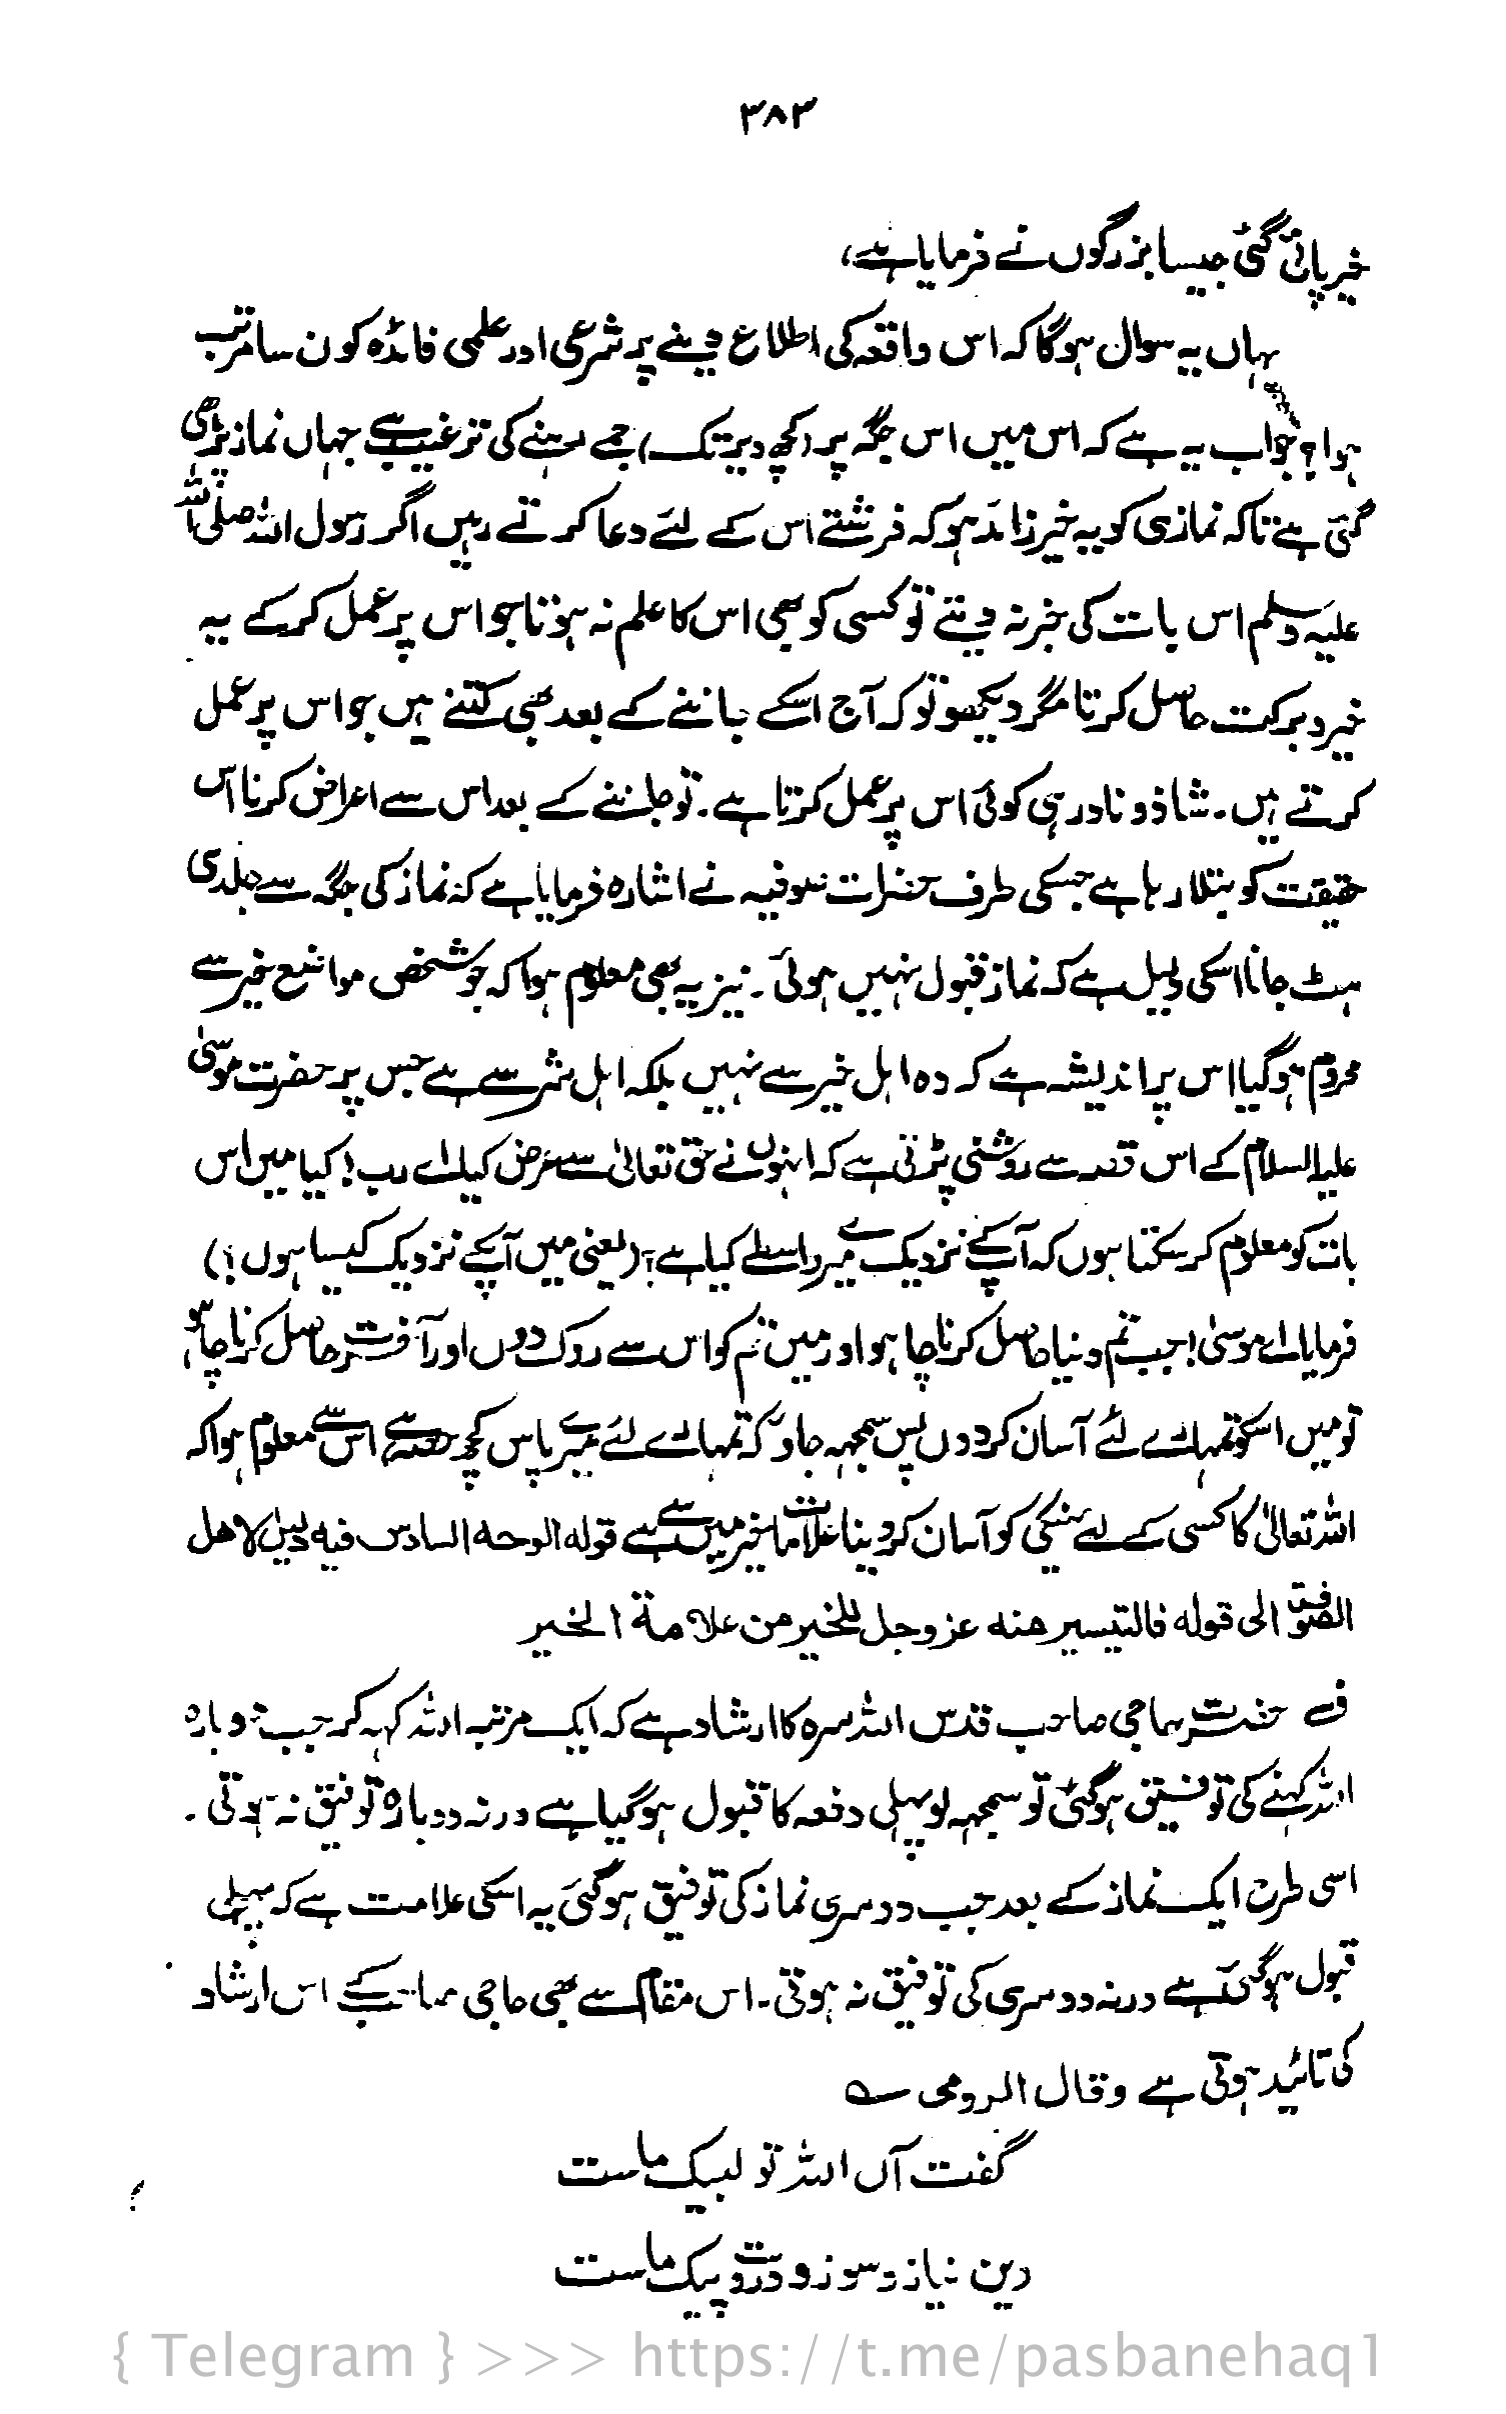 ۳۸۳
خیر پائی گئی جیسا بزرگوں نے فرمایا ہے،
یہاں یہ سوال ہوگا کہ اس واقعہ کی اطلاع دینے پر شرعی اور علمی فائدہ کون سا مرتب
ہوا؟ جواب یہ ہے کہ اس میں اس جگہ پر (کچھ دیر تک) جمے رہنے کی ترغیب ہے جہاں نماز پڑھی
گئی ہے تاکہ نمازی کو یہ خیر زائد ہو کہ فرشتے اس کے لئے دعا کرتے رہیں اگر رسول اللہ صلی اللہ
علیہ وسلم اس بات کی خبر نہ دیتے تو کسی کو بھی اس کا علم نہ ہوتا جو اس پر عمل کرکے یہ
خیر و برکت حاصل کرتا مگر دیکھو تو کہ آج اسکے جاننے کے بعد بھی کتنے ہیں جو اس پر عمل
کرتے ہیں۔ شاذ و نادر ہی کوئی اس پر عمل کرتا ہے۔ تو جاننے کے بعد اس سے اعراض کرنا اس
حقیقت کو بتلا رہا ہے جسکی طرف حضرات صوفیہ نے اشارہ فرمایا ہے کہ نماز کی جگہ سے جلدی
ہٹ جانا اسکی دلیل ہے کہ نماز قبول نہیں ہوئی۔ نیز یہ بھی معلوم ہوا کہ جو شخص مواضع خیر سے
محروم ہوگیا اس پر اندیشہ ہے کہ وہ اہل خیر سے نہیں بلکہ اہل شر سے ہے جس پر حضرت موسیٰ
علیہ السلام کے اس قصہ سے روشنی پڑتی ہے کہ انہوں نے حق تعالیٰ سے عرض کیا اے رب! کیا میں اس
بات کو معلوم کر سکتا ہوں کہ آپکے نزدیک میرے واسطے کیا ہے؟ (یعنی میں آپکے نزدیک کیسا ہوں؟)
فرمایا اے موسیٰ! جب تم دنیا حاصل کرنا چاہو اور میں تم کو اس سے روک دوں اور آخرت حاصل کرنا چاہو
تو میں اسکو تمہارے لئے آسان کردوں پس سمجھ جاؤ کہ تمہارے لئے میرے پاس کچھ حصہ ہے اس سے معلوم ہوا کہ
اللہ تعالیٰ کا کسی کے لئے نیکی کو آسان کردینا علامات خیر میں سے ہے قوله الوجه السادس فیه دلیل لاهل
الصوفیة الی قوله فالتیسیر منه عز وجل للخیر من علامة الخیر
ف حضرت حاجی صاحب قدس اللہ سرہ کا ارشاد ہے کہ ایک مرتبہ اللہ کہہ کر جب دوبارہ
اللہ کہنے کی توفیق ہوگئی تو سمجھ لو پہلی دفعہ کا قبول ہوگیا ہے ورنہ دوبارہ توفیق نہ ہوتی۔
اسی طرح ایک نماز کے بعد جب دوسری نماز کی توفیق ہوگئی یہ اسکی علامت ہے کہ پہلی
قبول ہوگئی ہے ورنہ دوسری کی توفیق نہ ہوتی۔ اس مقام سے بھی حاجی صاحب کے اس ارشاد
کی تائید ہوتی ہے وقال الرومی ؎
گفت آں اللہ تو لبیک ماست
دین نیاز و سوز و دردت پیک ماست
{ Telegram } >>> https://t.me/pasbanehaq1